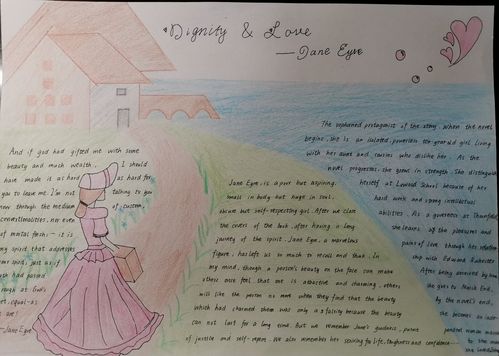 Dignity & Love
— Jane Eyre
And if god had gifted me with some
beauty and much wealth, I should
have made it as hard as hard for
you to leave me. I'm not talking to you
now through the medium of custom,
conventionalities, nor even
of mortal flesh: — it is
my spirit that addresses
your spirit; just as if
both had passed
through at God's
feet, equal — as
we are!
— Jane Eyre
Jane Eyre, is a poor but aspiring,
small in body but huge in soul,
obscure but self-respecting girl. After we close
the covers of the book, after having a long
journey of the spirit, Jane Eyre, a marvelous
figure, has left us so much to recall and think. In
my mind, though a person's beauty on the face can make
others once feel that one is attractive and charming, others
will like the person no more when they find that the beauty
which had charmed them was only a falsity because the beauty
can not last for a long time. But we remember Jane's
of justice and self-respect. We also remember her striving for life, toughness and confidence
The orphaned protagonist of the story, when the novel
begins, she is an isolated, powerless ten-year-old girl living
with her aunt and cousins who dislike her. As the
novel progresses, she grows in strength. She distinguishes
herself at Lowood School because of her
hard work and strong intellectual
abilities. As a governess at Thornfield
she learns of the pleasures and
pains of love through her relation
ship with Edward Rochester
After being deceived by him
she goes to Marsh End,
by the novel's end,
she becomes
woman